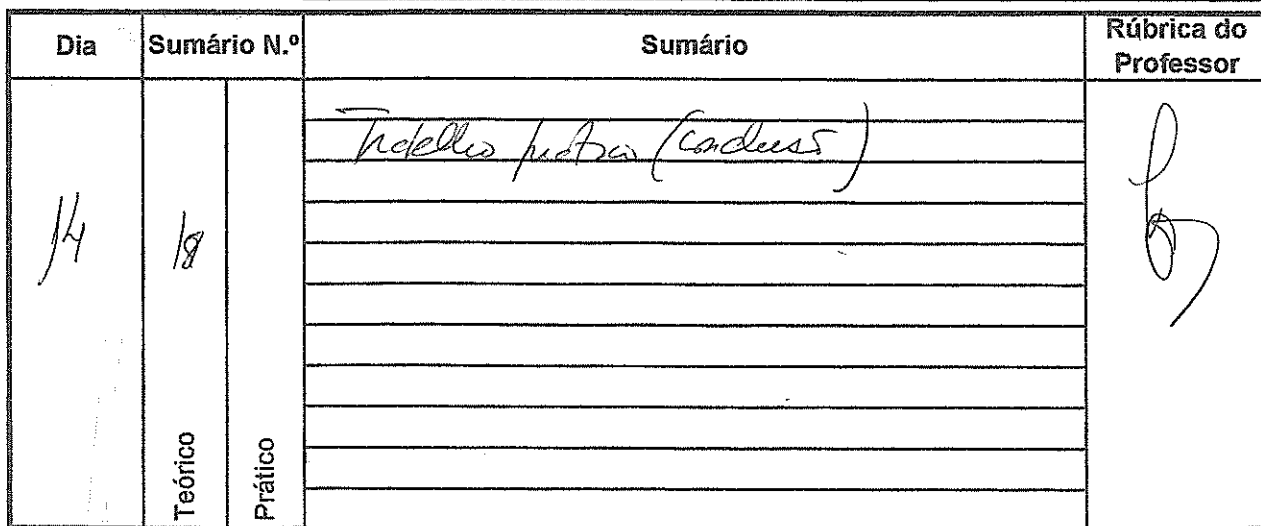 Dia Sumário N.º Sumário Rúbrica do Professor
Trabalho prático (conclusão)
14 18
Teórico Prático